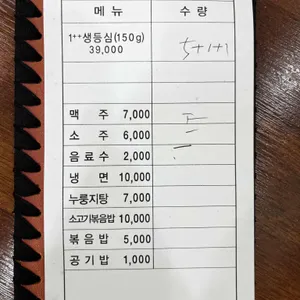 메뉴 수량
1++생등심(150g)
39,000 5+1+1
맥 주 7,000
소 주 6,000
음료수 2,000
냉 면 10,000
누룽지탕 7,000
소고기볶음밥 10,000
볶음밥 5,000
공기밥 1,000